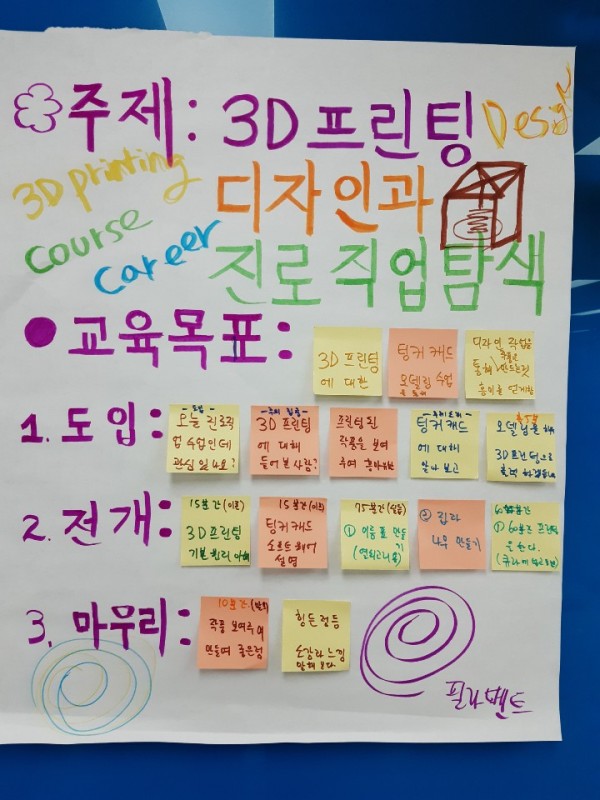 주제: 3D 프린팅
Design
3D printing
디자인과
Course
Career
진로 직업탐색
교육목표:
3D 프린팅
에 대한
팅커 캐드
모델링 수업
디자인 작업을
통해 만드는것
흥미를
1. 도입:
오늘 진로직
업 수업인데
관심 있나요?
3D 프린팅
에 대해
들어본 사람?
프린팅 된
작품을 보여
주며
팅커캐드
에 대해
알아보고
모델링을
3D 프린팅으로
출력
2. 전개:
15분간(이론)
3D 프린팅
기본 원리 이해
15분간(이론)
팅커 캐드
소프트웨어
설명
75분간(실습)
① 이름표 만들
기
② 집과
나무 만들기
60분간
① 60분간 프린팅
을 한다.
3. 마무리:
10분간
작품 보여주며
만들며 좋은점
힘든점등
소감과 느낌
말해 본다
필라멘트